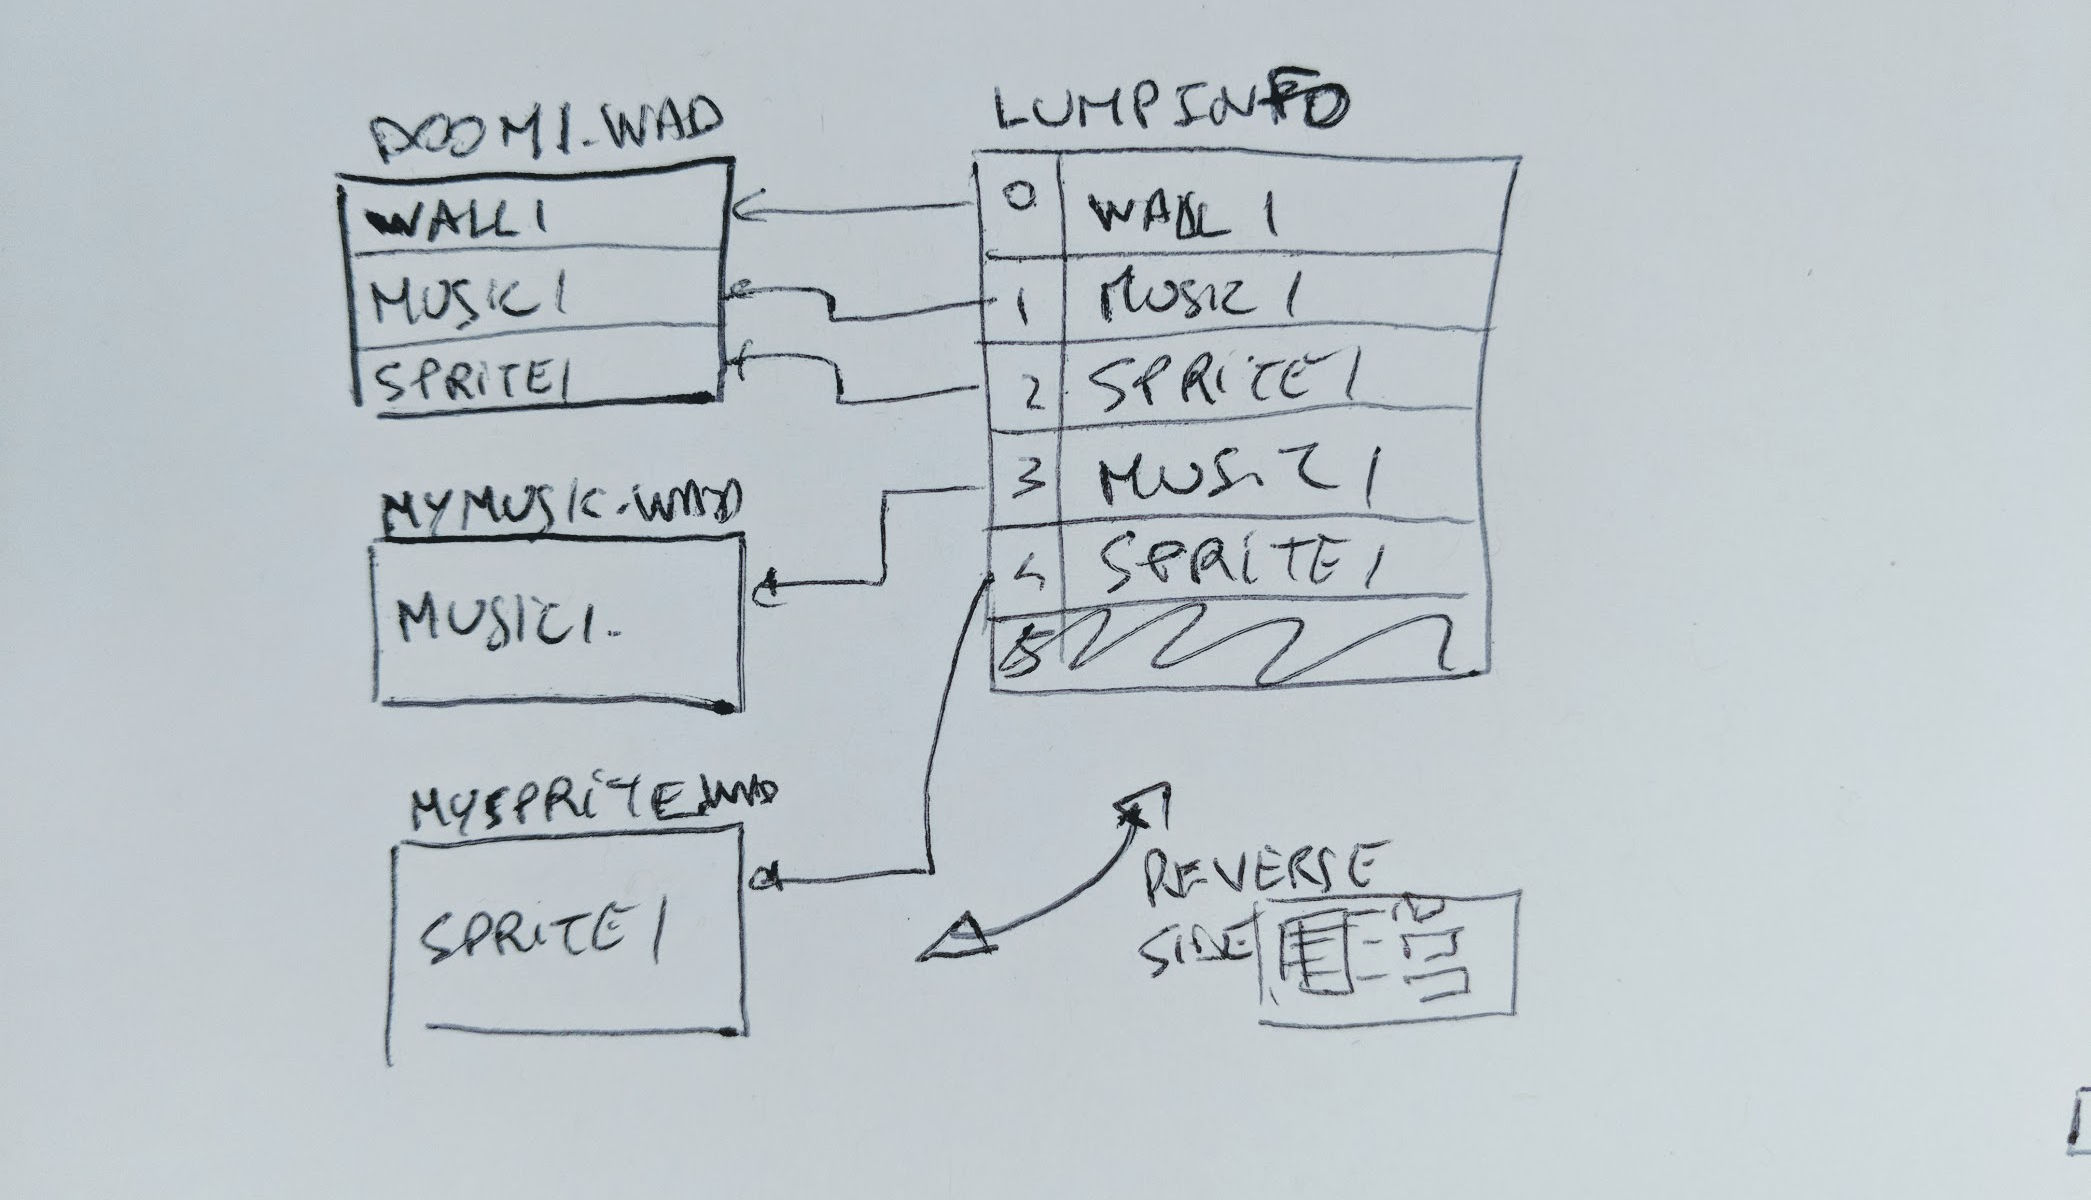 DOOM1.WAD
WALL1
MUSIC1
SPRITE1
MYMUSIC.WAD
MUSIC1.
MYSPRITE.WAD
SPRITE1
LUMPINFO
0 WALL 1
1 MUSIC 1
2 SPRITE 1
3 MUSIC 1
4 SPRITE 1
5
REVERSE
SIDE